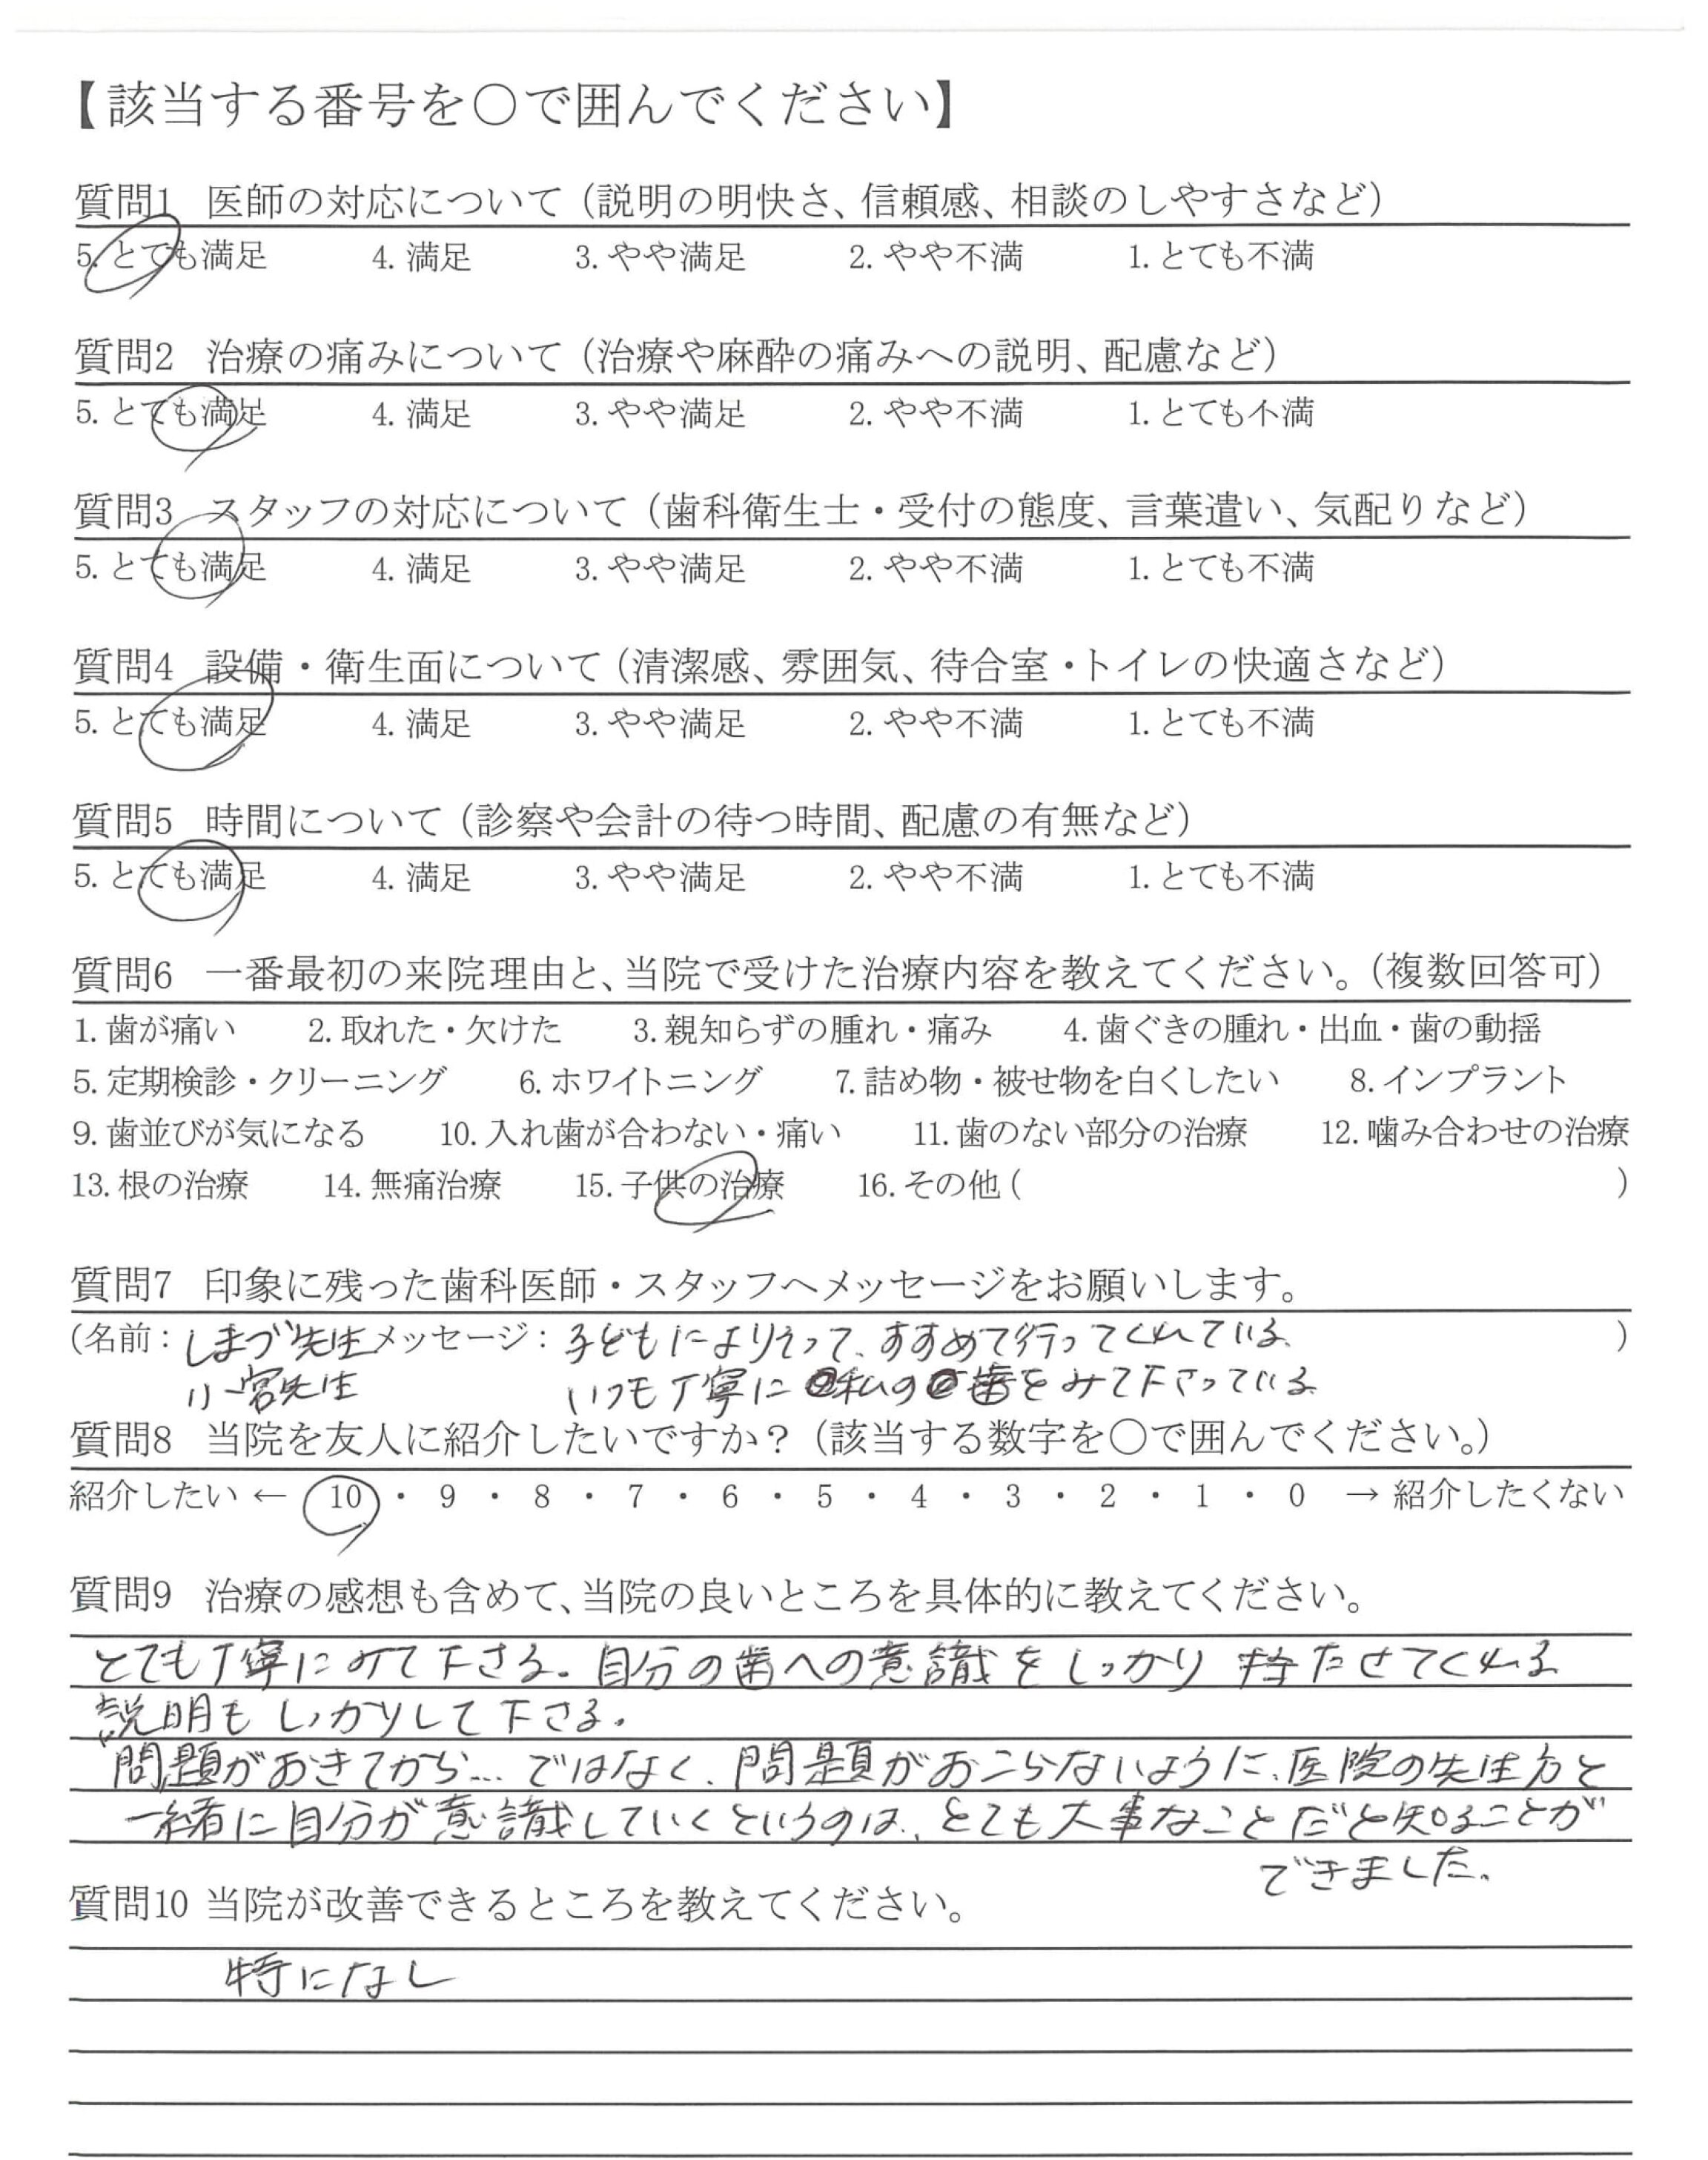 【該当する番号を○で囲んでください】
質問1 医師の対応について（説明の明快さ、信頼感、相談のしやすさなど）
5. とても満足 4. 満足 3. やや満足 2. やや不満 1. とても不満
質問2 治療の痛みについて（治療や麻酔の痛みへの説明、配慮など）
5. とても満足 4. 満足 3. やや満足 2. やや不満 1. とても不満
質問3 スタッフの対応について（歯科衛生士・受付の態度、言葉遣い、気配りなど）
5. とても満足 4. 満足 3. やや満足 2. やや不満 1. とても不満
質問4 設備・衛生面について（清潔感、雰囲気、待合室・トイレの快適さなど）
5. とても満足 4. 満足 3. やや満足 2. やや不満 1. とても不満
質問5 時間について（診察や会計の待つ時間、配慮の有無など）
5. とても満足 4. 満足 3. やや満足 2. やや不満 1. とても不満
質問6 一番最初の来院理由と、当院で受けた治療内容を教えてください。（複数回答可）
1. 歯が痛い 2. 取れた・欠けた 3. 親知らずの腫れ・痛み 4. 歯ぐきの腫れ・出血・歯の動揺
5. 定期検診・クリーニング 6. ホワイトニング 7. 詰め物・被せ物を白くしたい 8. インプラント
9. 歯並びが気になる 10. 入れ歯が合わない・痛い 11. 歯のない部分の治療 12. 噛み合わせの治療
13. 根の治療 14. 無痛治療 15. 子供の治療 16. その他（ ）
質問7 印象に残った歯科医師・スタッフへメッセージをお願いします。
（名前：しまづ先生 メッセージ：子どもによりそって、すすめて行ってくれている。 ）
小宮先生 いつも丁寧に 私の 歯をみて下さっている
質問8 当院を友人に紹介したいですか？（該当する数字を○で囲んでください。）
紹介したい ← 10 ・ 9 ・ 8 ・ 7 ・ 6 ・ 5 ・ 4 ・ 3 ・ 2 ・ 1 ・ 0 → 紹介したくない
質問9 治療の感想も含めて、当院の良いところを具体的に教えてください。
とても丁寧にみて下さる。自分の歯への意識をしっかり持たせてくれる
説明もしっかりして下さる。
問題がおきてから…ではなく、問題がおこらないように、医院の先生方と
一緒に自分が意識していくというのは、とても大事なことだと知ることが
できました。
質問10 当院が改善できるところを教えてください。
特になし